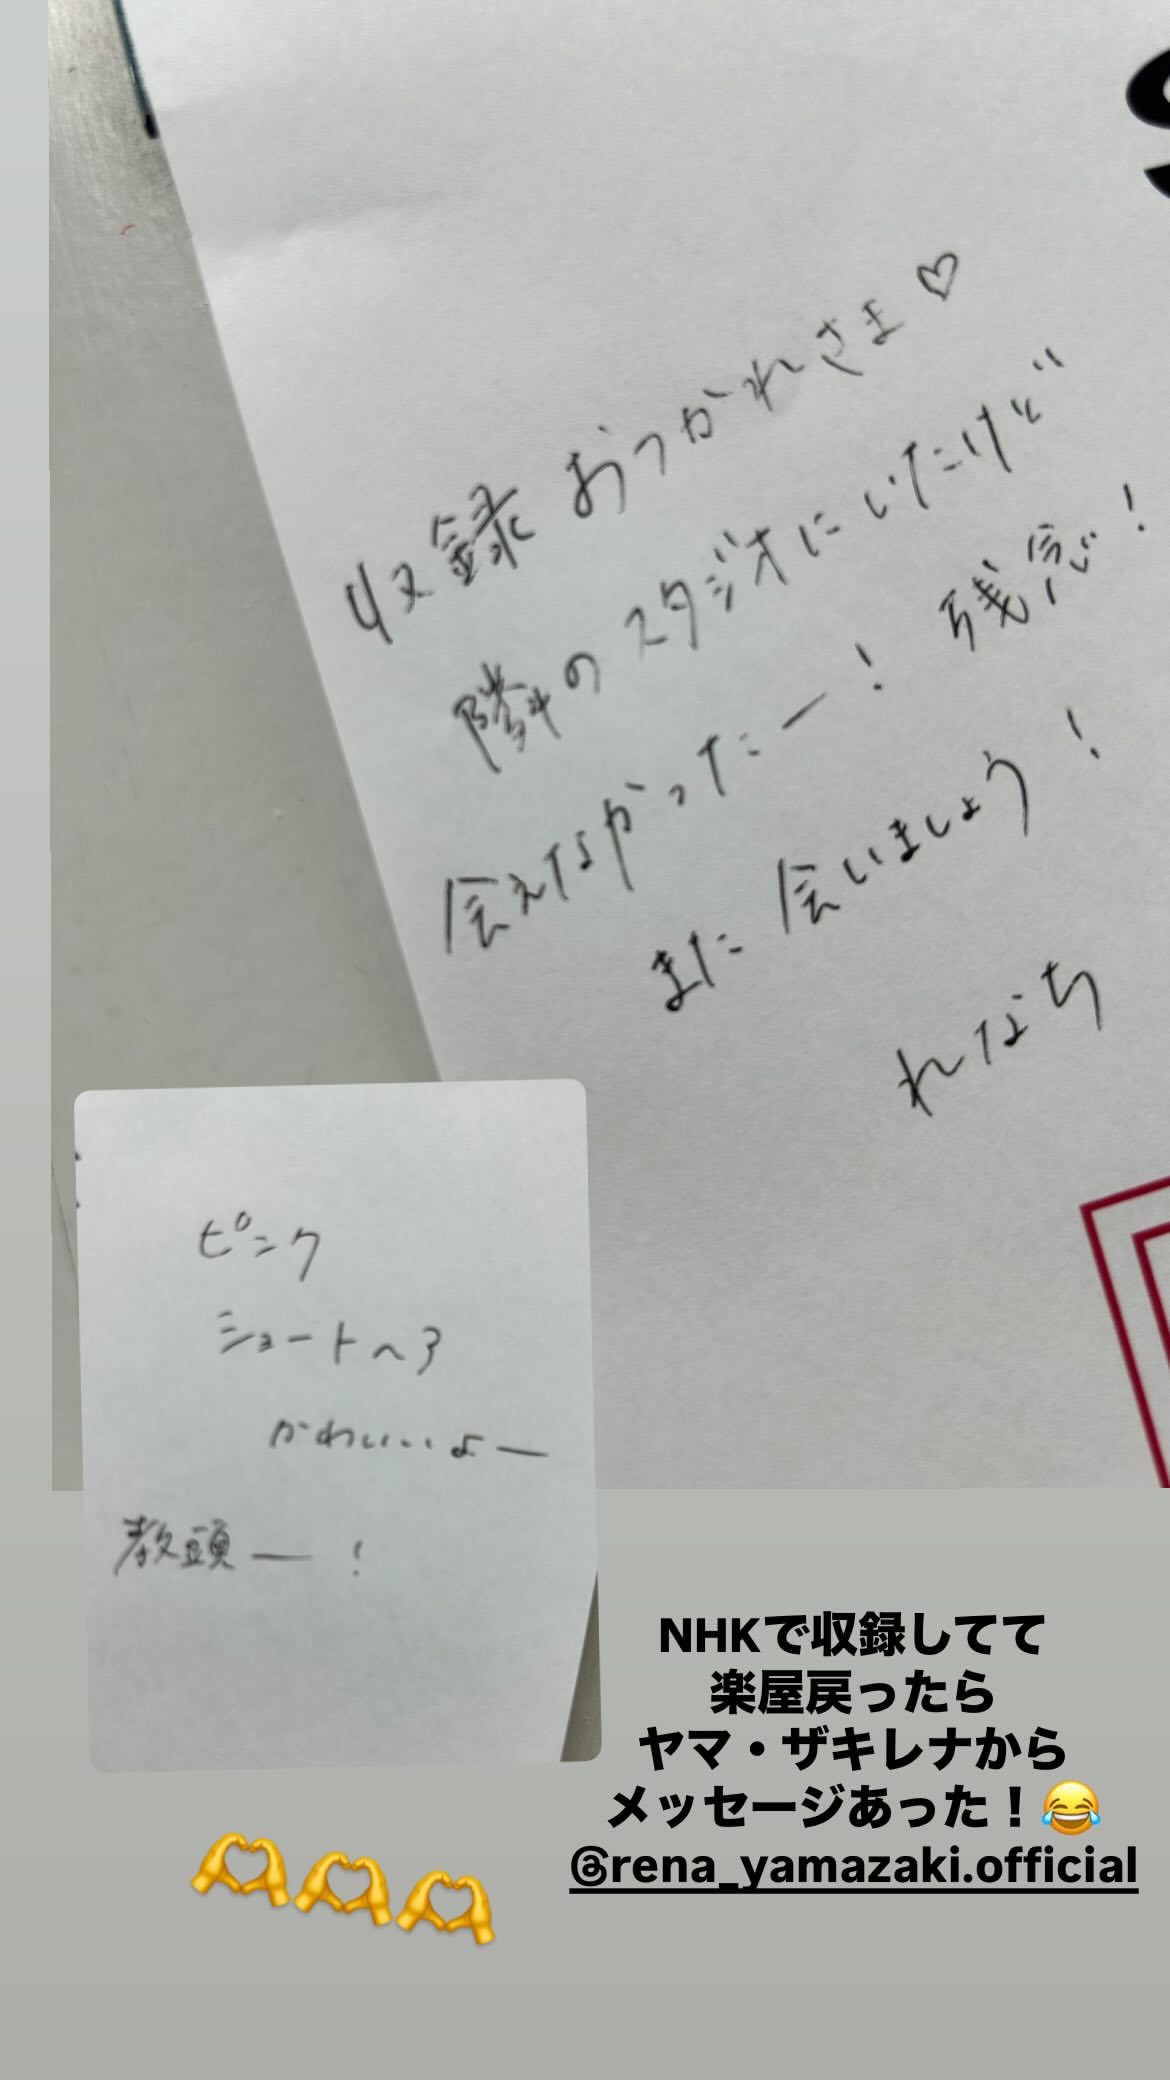 収録 おつかれさま♡
隣のスタジオにいたけど
会えなかったー! 残念!
また会いましょう!
れなち
ピンク
ショートヘア
かわいいよー
教頭ー!
NHKで収録してて
楽屋戻ったら
ヤマ・ザキレナから
メッセージあった！😂
@rena_yamazaki.official